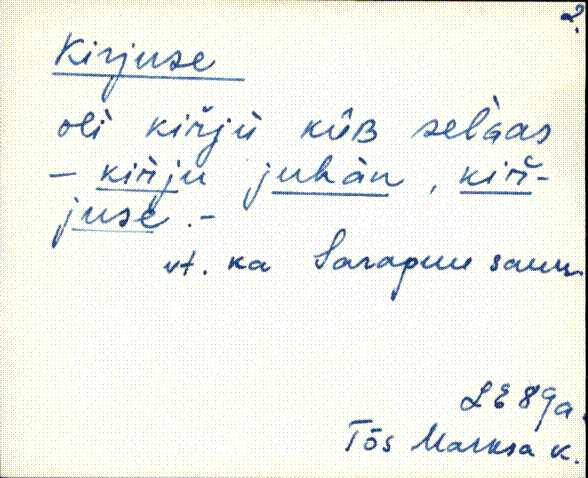 2.
Kirjuse
oli kiřjù kûB selàas
– kiřju juhàn, kiř-
juse.–
vt. ka Sarapuu saun
LE 89a.
Tõs Marksa k.